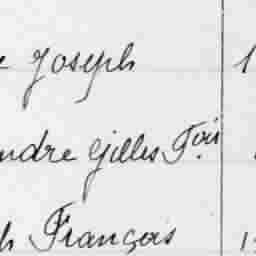 e Joseph 1
ndre Gilles Fois
h François 1